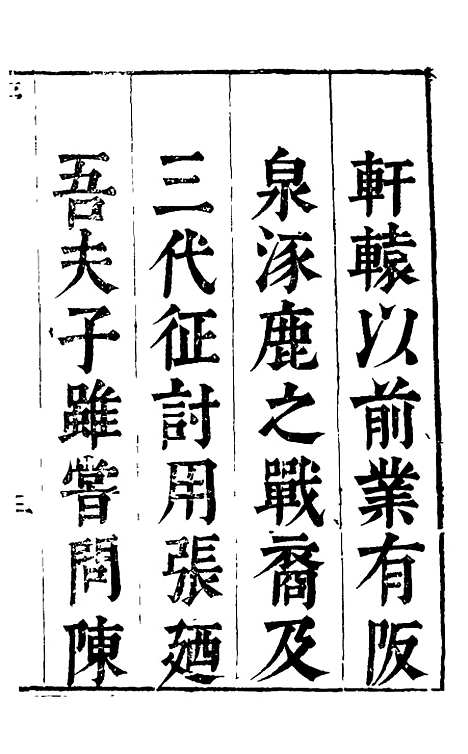 軒轅以前業有阪
泉涿鹿之戰裔及
三代征討用張廼
吾夫子雖嘗問陳
三